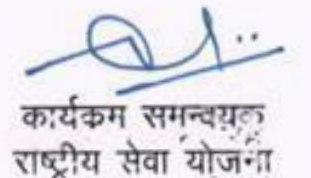 कार्यकम समन्वयक
राष्ट्रीय सेवा योजना